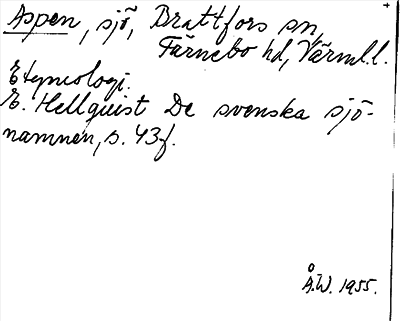 Aspen, sjö, Brattfors sn,
Färnebo hd, Värml.l.
Etymologi.
E. Hellquist De svenska sjö-
namnen, s. 43f.
Å.W. 1955.